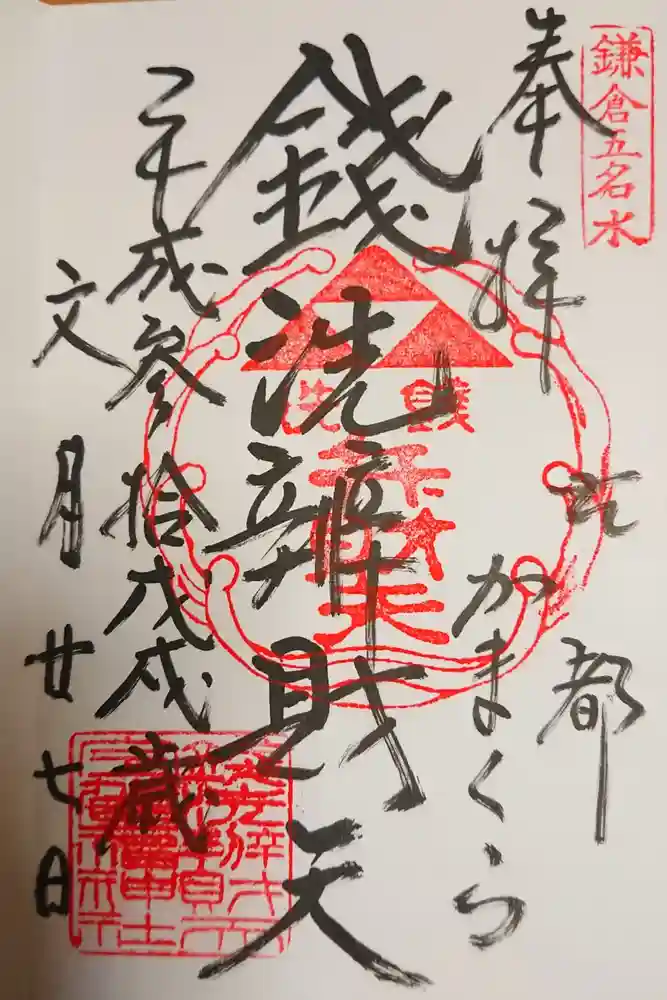 鎌倉五名水
奉拝
古都
かまくら
錢洗辨財天
平成参拾戊戌歳
文月廿七日
錢洗